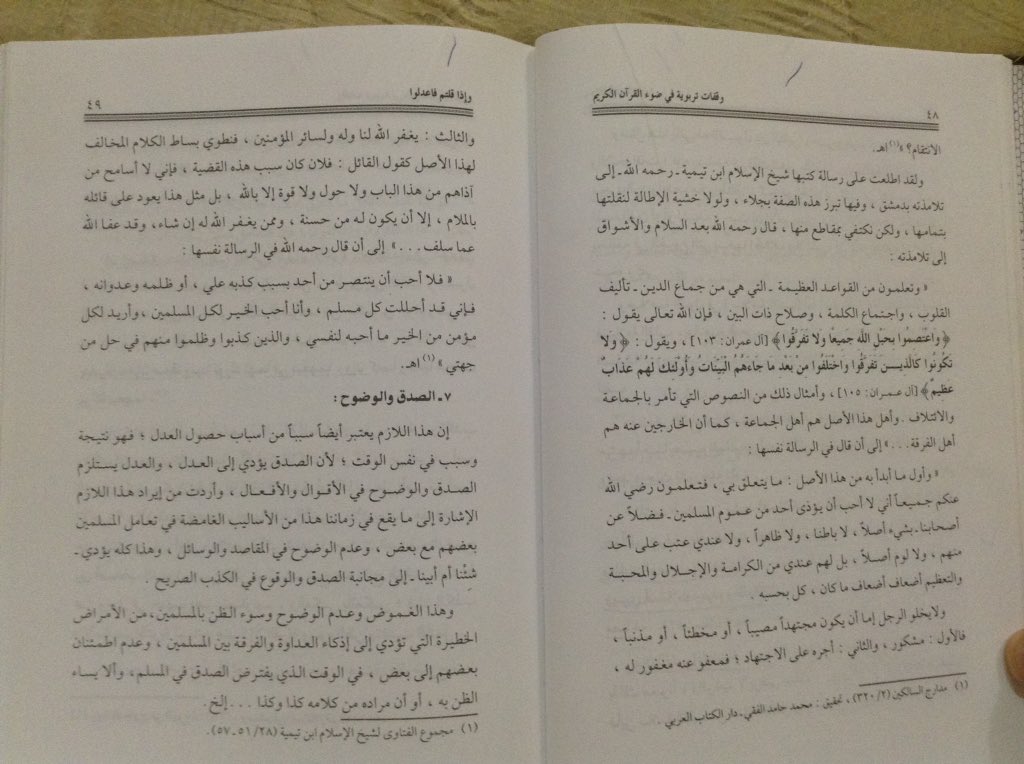 وقفات تربوية في ضوء القرآن الكريم
٤٨
الانتقام؟ »(١) اهـ.
ولقد اطلعت على رسالة كتبها شيخ الإسلام ابن تيمية ـ رحمه الله ـ إلى
تلامذته بدمشق ، وفيها تبرز هذه الصفة بجلاء ، ولولا خشية الإطالة لنقلتها
بتمامها ، ولكن نكتفي بمقاطع منها ، قال رحمه الله بعد السلام والأشواق
إلى تلامذته :
« وتعلمون من القواعد العظيمة ـ التي هي من جماع الدين ـ تأليف
القلوب ، واجتماع الكلمة ، وصلاح ذات البين ، فإن الله تعالى يقول :
﴿وَاعْتَصِمُوا بِحَبْلِ اللَّهِ جَمِيعًا وَلا تَفَرَّقُوا﴾ [آل عمران: ١٠٣] ، ويقول : ﴿وَلا
تَكُونُوا كَالَّذِيـنَ تَفَرَّقُوا وَاخْتَلَفُوا مِنْ بَعْدِ مَا جَاءَهُمُ الْبَيِّنَاتُ وَأُوْلَئِكَ لَهُمْ عَذَابٌ
عَظِيمٌ﴾ [آل عمـران: ١٠٥] ، وأمثال ذلك من النصوص التي تأمر بالجماعة
والائتلاف . وأهل هذا الأصل هم أهل الجماعة ، كما أن الخارجين عنه هم
أهل الفرقة . . . » إلى أن قال في الرسالة نفسها :
« وأول ما أبدأ به من هذا الأصل : ما يتعلق بي ، فتعلمـون رضي الله
عنكم جميعـاً أني لا أحب أن يؤذى أحد من عموم المسلمين ـ فضـلاً عن
أصحابنا ـ بشيء أصلاً ، لا باطنا ، ولا ظاهراً ، ولا عندي عتب على أحد
منهم ، ولا لوم أصلاً ، بل لهم عندي من الكرامة والإجلال والمحبـة
والتعظيم أضعاف أضعاف ما كان ، كل بحسبه .
ولا يخلو الرجل إما أن يكون مجتهداً مصيباً ، أو مخطئاً ، أو مذنباً ،
فالأول : مشكور ، والثاني : أجره على الاجتهاد ؛ فمعفو عنه مغفور له ،
(١) مدارج السالكين (٢/ ٣٢٠) ، تحقيق : محمد حامد الفقي ـ دار الكتاب العربي .
وإذا قلتم فاعدلوا
٤٩
والثالث : يغفر الله لنا وله ولسائر المؤمنين ، فنطوي بساط الكلام المخالف
لهذا الأصل كقول القائل : فلان كان سبب هذه القضية ، فإني لا أسامح من
آذاهم من هذا الباب ولا حول ولا قوة إلا بالله ، بل مثل هذا يعود على قائله
بالملام ، إلا أن يكون لـه من حسنة ، وممن يغفـر الله له إن شاء ، وقد عفـا الله
عما سلف . . . » إلى أن قال رحمه الله في الرسالة نفسها :
« فلا أحب أن ينتصر من أحد بسبب كذبه علي ، أو ظلمه وعدوانه ،
فإني قد أحللت كل مسلم ، وأنا أحب الخيـر لكل المسلمين ، وأريد لكل
مؤمن من الخير ما أحبه لنفسي ، والذين كذبوا وظلموا منهم في حل من
جهتي »(١) اهـ.
٧ ـ الصدق والوضوح :
إن هذا اللازم يعتبر أيضاً سبباً من أسباب حصول العدل ؛ فهو نتيجة
وسبب في نفس الوقت ؛ لأن الصدق يؤدي إلى العدل ، والعدل يستلزم
الصدق والوضوح في الأقوال والأفعـال ، وأردت من إيراد هـذا اللازم
الإشارة إلى ما يقع في زماننا هـذا من الأساليب الغامضة في تعامل المسلمين
بعضهم مع بعض ، وعدم الوضوح في المقاصد والوسائل ، وهذا كله يؤدي ـ
شئنا أم أبينا ـ إلى مجانبة الصدق والوقوع في الكذب الصريح .
وهذا الغـموض وعدم الوضوح وسوء الظن بالمسلمين، من الأمراض
الخطيرة التي تؤدي إلى إذكاء العداوة والفرقة بين المسلمين ، وعدم اطمئنان
بعضهم إلى بعض ، في الوقت الـذي يفتـرض الصدق في المسلم، وألا يسـاء
الظن به ، أو أن مراده من كلامه كذا وكذا . . . إلخ .
(١) مجموع الفتاوى لشيخ الإسلام ابن تيمية (٢٨/ ٥١ـ ٥٧).